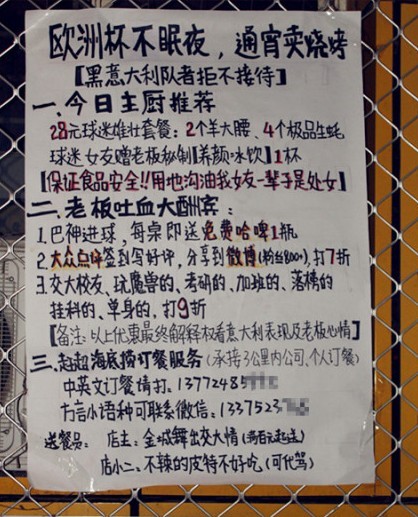 欧洲杯不眠夜，通宵卖烧烤
【黑意大利队者拒不接待】
一、今日主厨推荐
28元球迷雄壮套餐：2个羊大腰、4个极品生蚝
球迷女友赠老板秘制【养颜冰饮】1杯
【保证食品安全!!用地沟油我女友一辈子是处女】
二、老板吐血大酬宾：
1.巴神进球，每桌即送免费哈啤1瓶
2.大众点评签到写好评，分享到微博（粉丝800+），打7折
3.交大校友、玩魔兽的、考研的、加班的、落榜的
挂科的、单身的、打9折
【备注：以上优惠最终解释权看意大利表现及老板心情】
三、超超海底捞订餐服务（承接3公里内公司、个人订餐）
中英文订餐请打：13772485
方言小语种可联系微信：1337523
送餐员： 店主：金城舞出交大情（满百元起送）
店小二：不辣的皮特不好吃（可代驾）